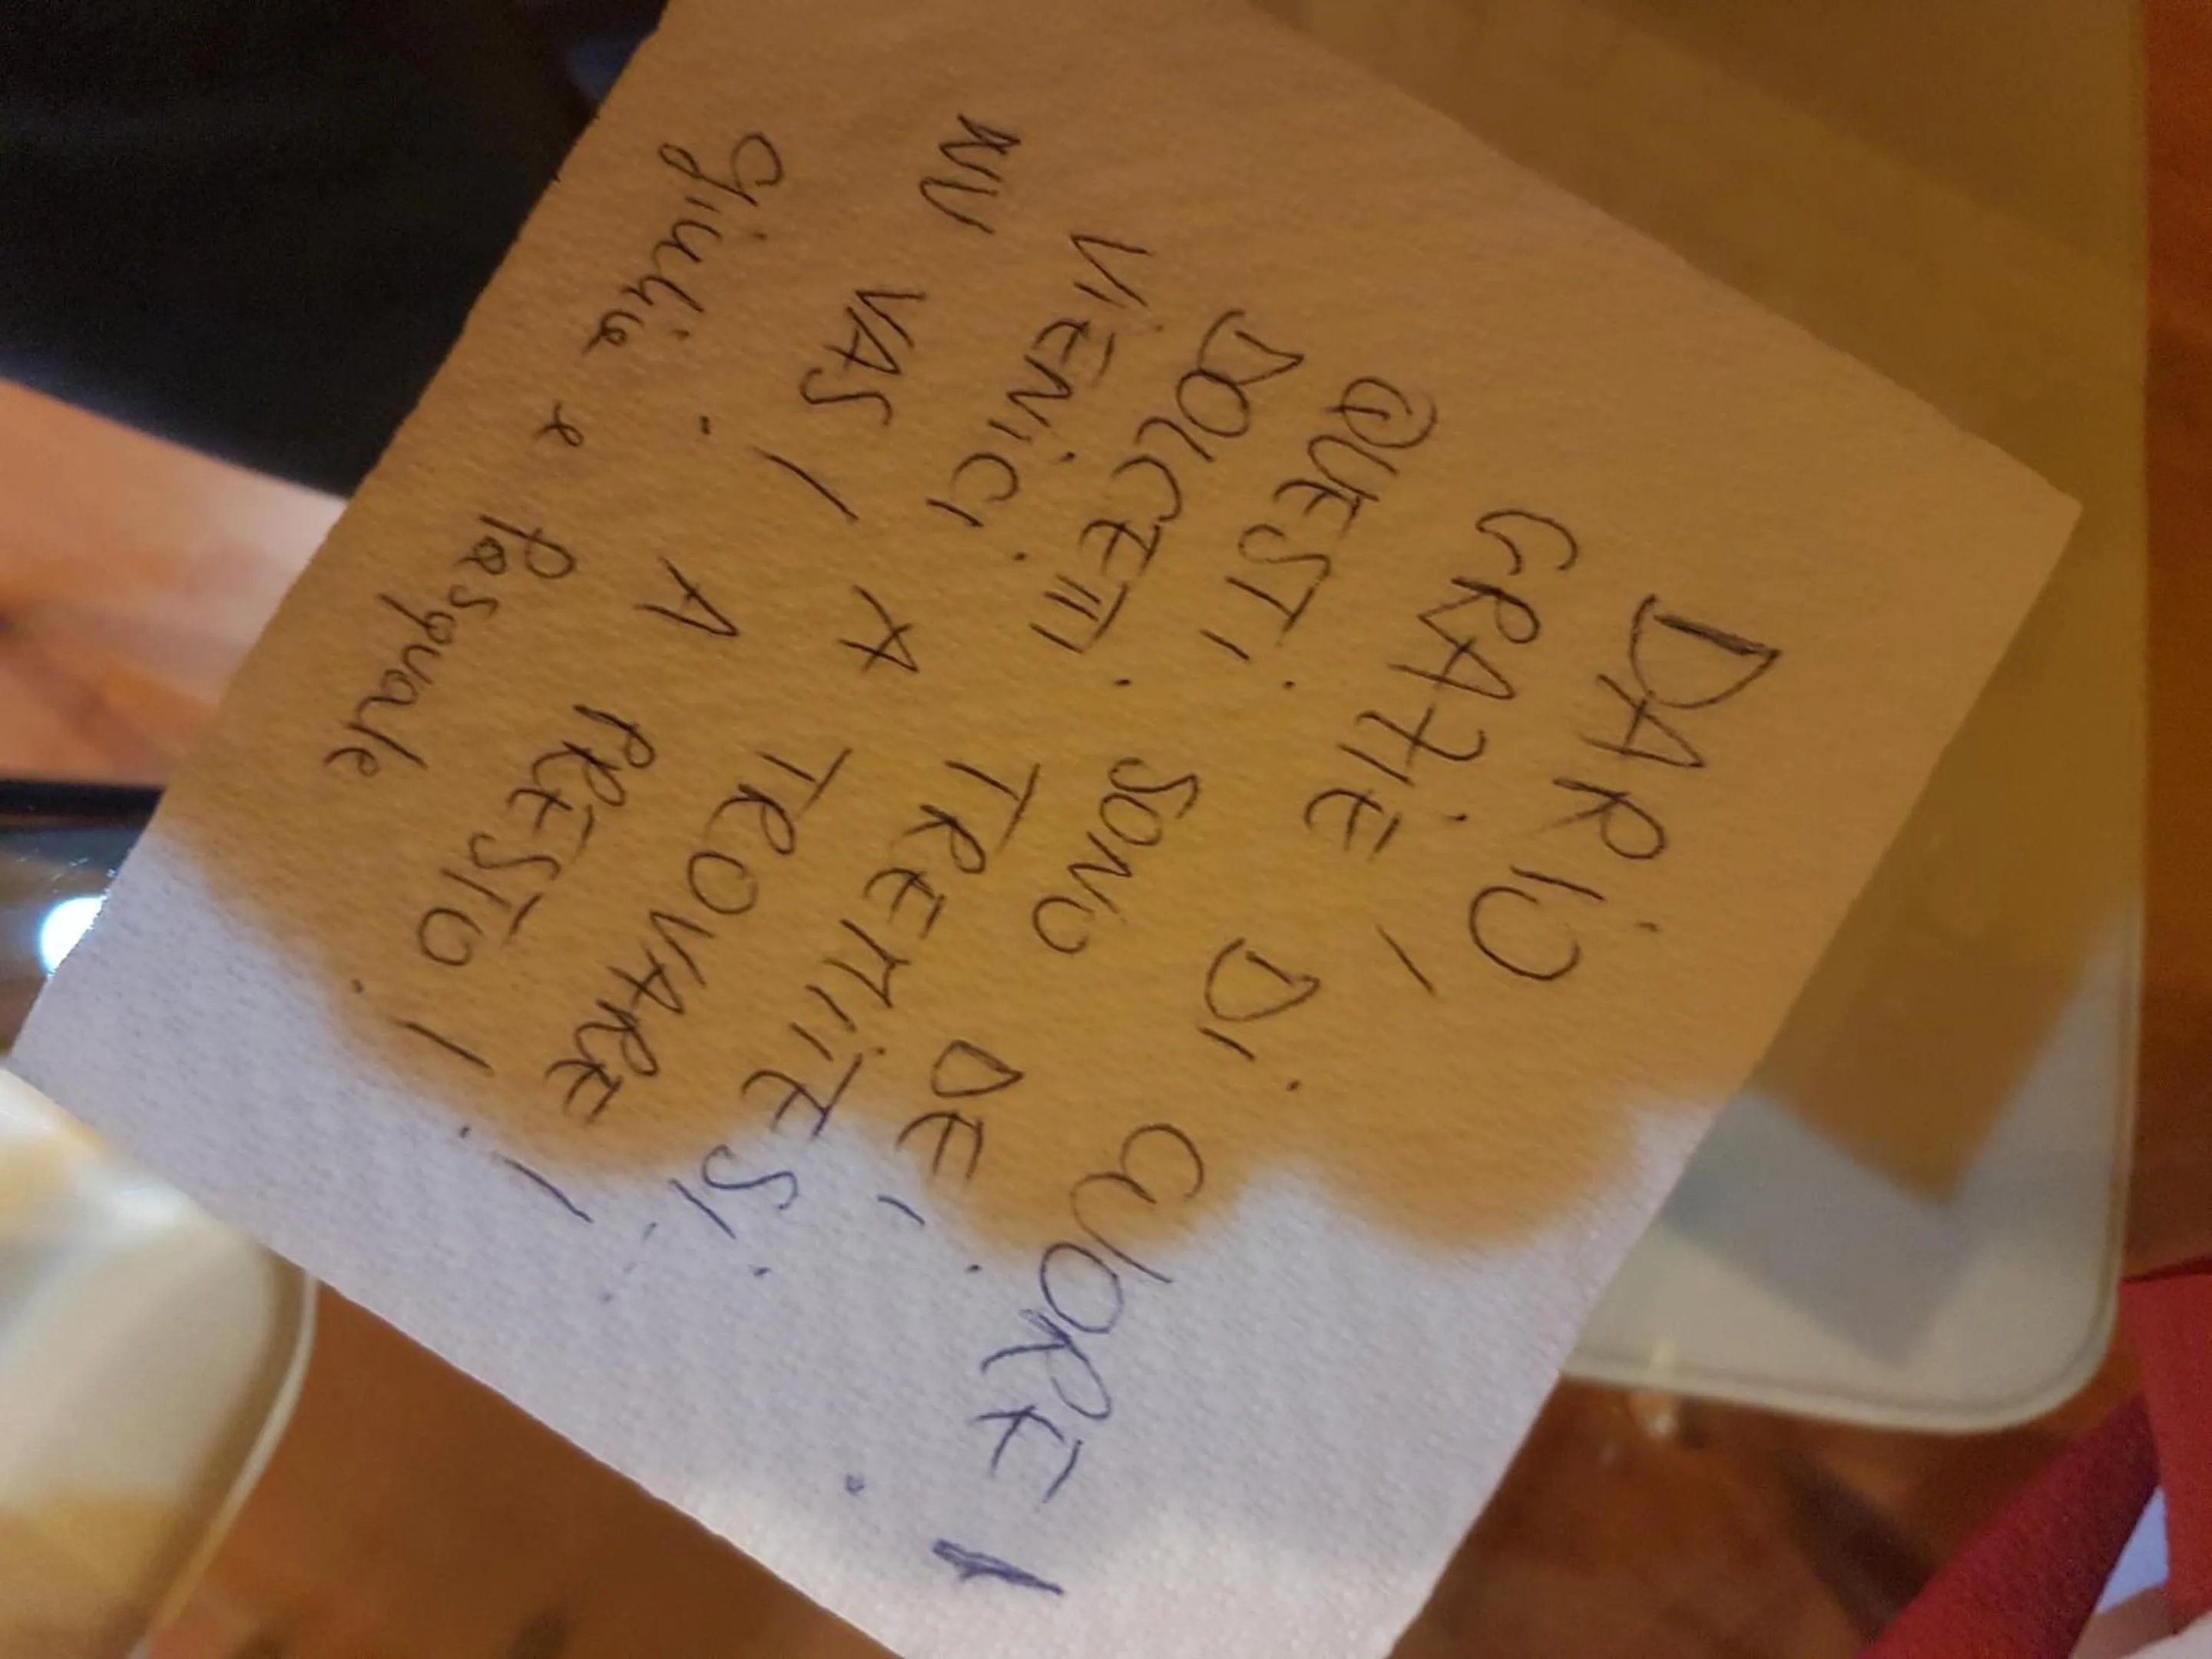 DARIO,
GRAZIE DI CUORE!
QUESTI SONO DE'
DOLCETTI TREMITESI.
VIENICI A TROVARE!
NU VAS! A PRESTO!
Giulia e Pasquale